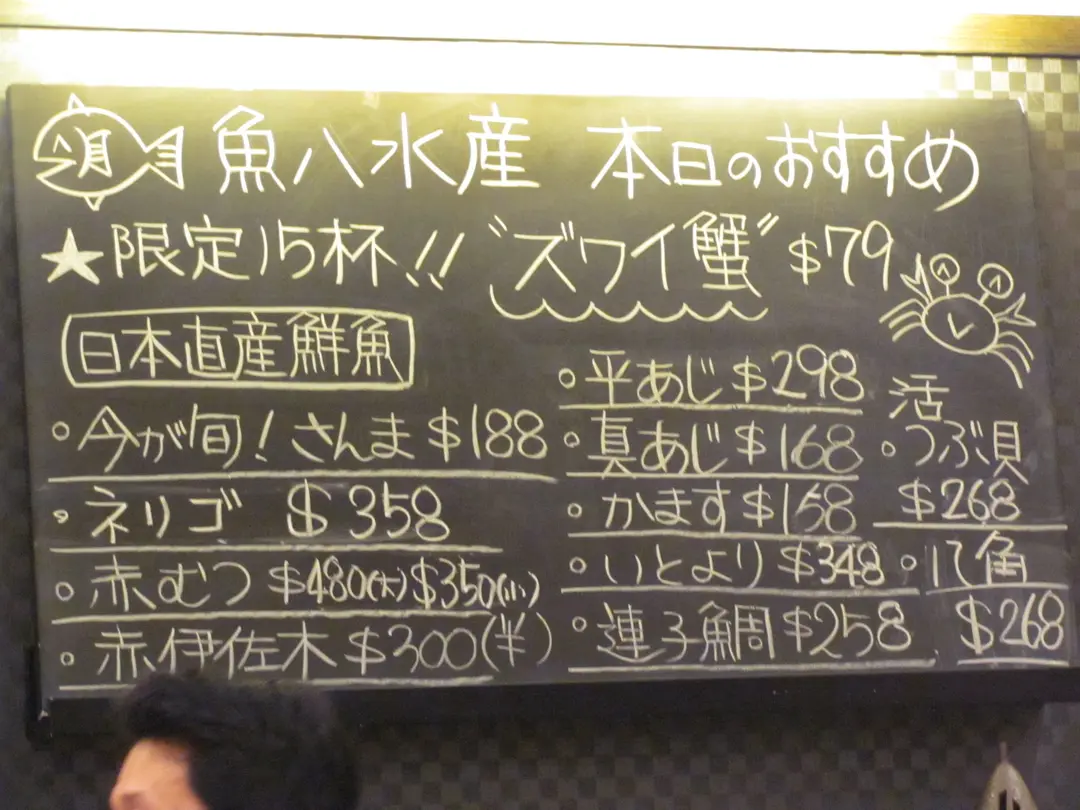 魚八水産 本日のおすすめ
★限定15杯!! “ズワイ蟹” $79
日本直産鮮魚
・今が旬!さんま $188
・ネリゴ $358
・赤むつ $480(大) $350(小)
・赤伊佐木 $300(半)
・平あじ $298
・真あじ $168
・かます $158
・いとより $348
・連子鯛 $258
活
・つぶ貝
$268
・角
$268